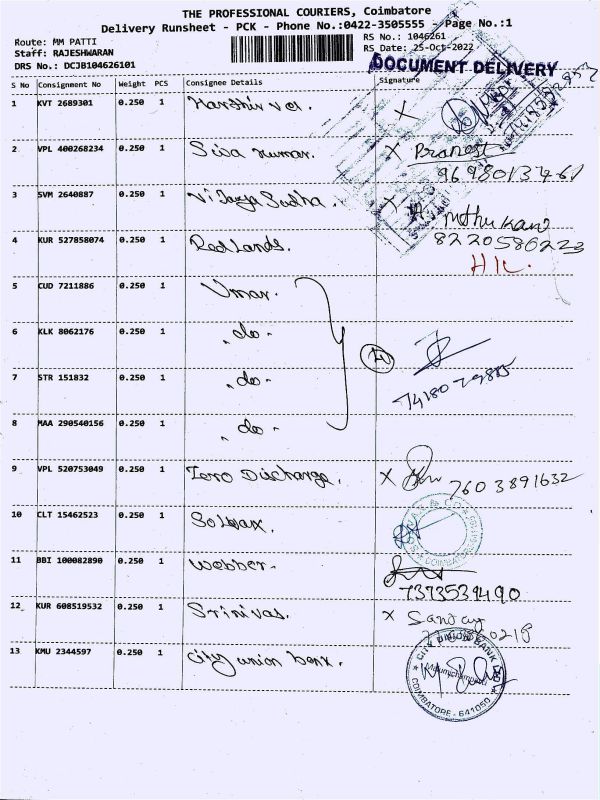 THE PROFESSIONAL COURIERS, Coimbatore
Delivery Runsheet - PCK - Phone No.:0422-3505555 - Page No.:1
Route: MM PATTI
Staff: RAJESHWARAN
DRS No.: DCJB104626101
RS No.: 1046261
RS Date: 25-Oct-2022
DOCUMENT DELIVERY
S No Consignment No Weight PCS Consignee Details Signature
1 KVT 2689301 0.250 1
2 VPL 400268234 0.250 1 Siva Kumar.
9698013461
3 SVM 2640887 0.250 1
4 KUR 527858074 0.250 1 Redlands. 8220586223
5 CUD 7211886 0.250 1 Umar.
6 KLK 8062176 0.250 1 " do "
7 STR 151832 0.250 1 " do "
7418079885
8 MAA 290540156 0.250 1 " do "
9 VPL 520753049 0.250 1 Zero Discharge. X 7603891632
10 CLT 15462523 0.250 1
11 BBI 100082890 0.250 1 Webber.
7373539490
12 KUR 608519532 0.250 1 Srinivas. X Sanjay
13 KMU 2344597 0.250 1 City union bank.
CITY UNION BANK
COIMBATORE - 641050